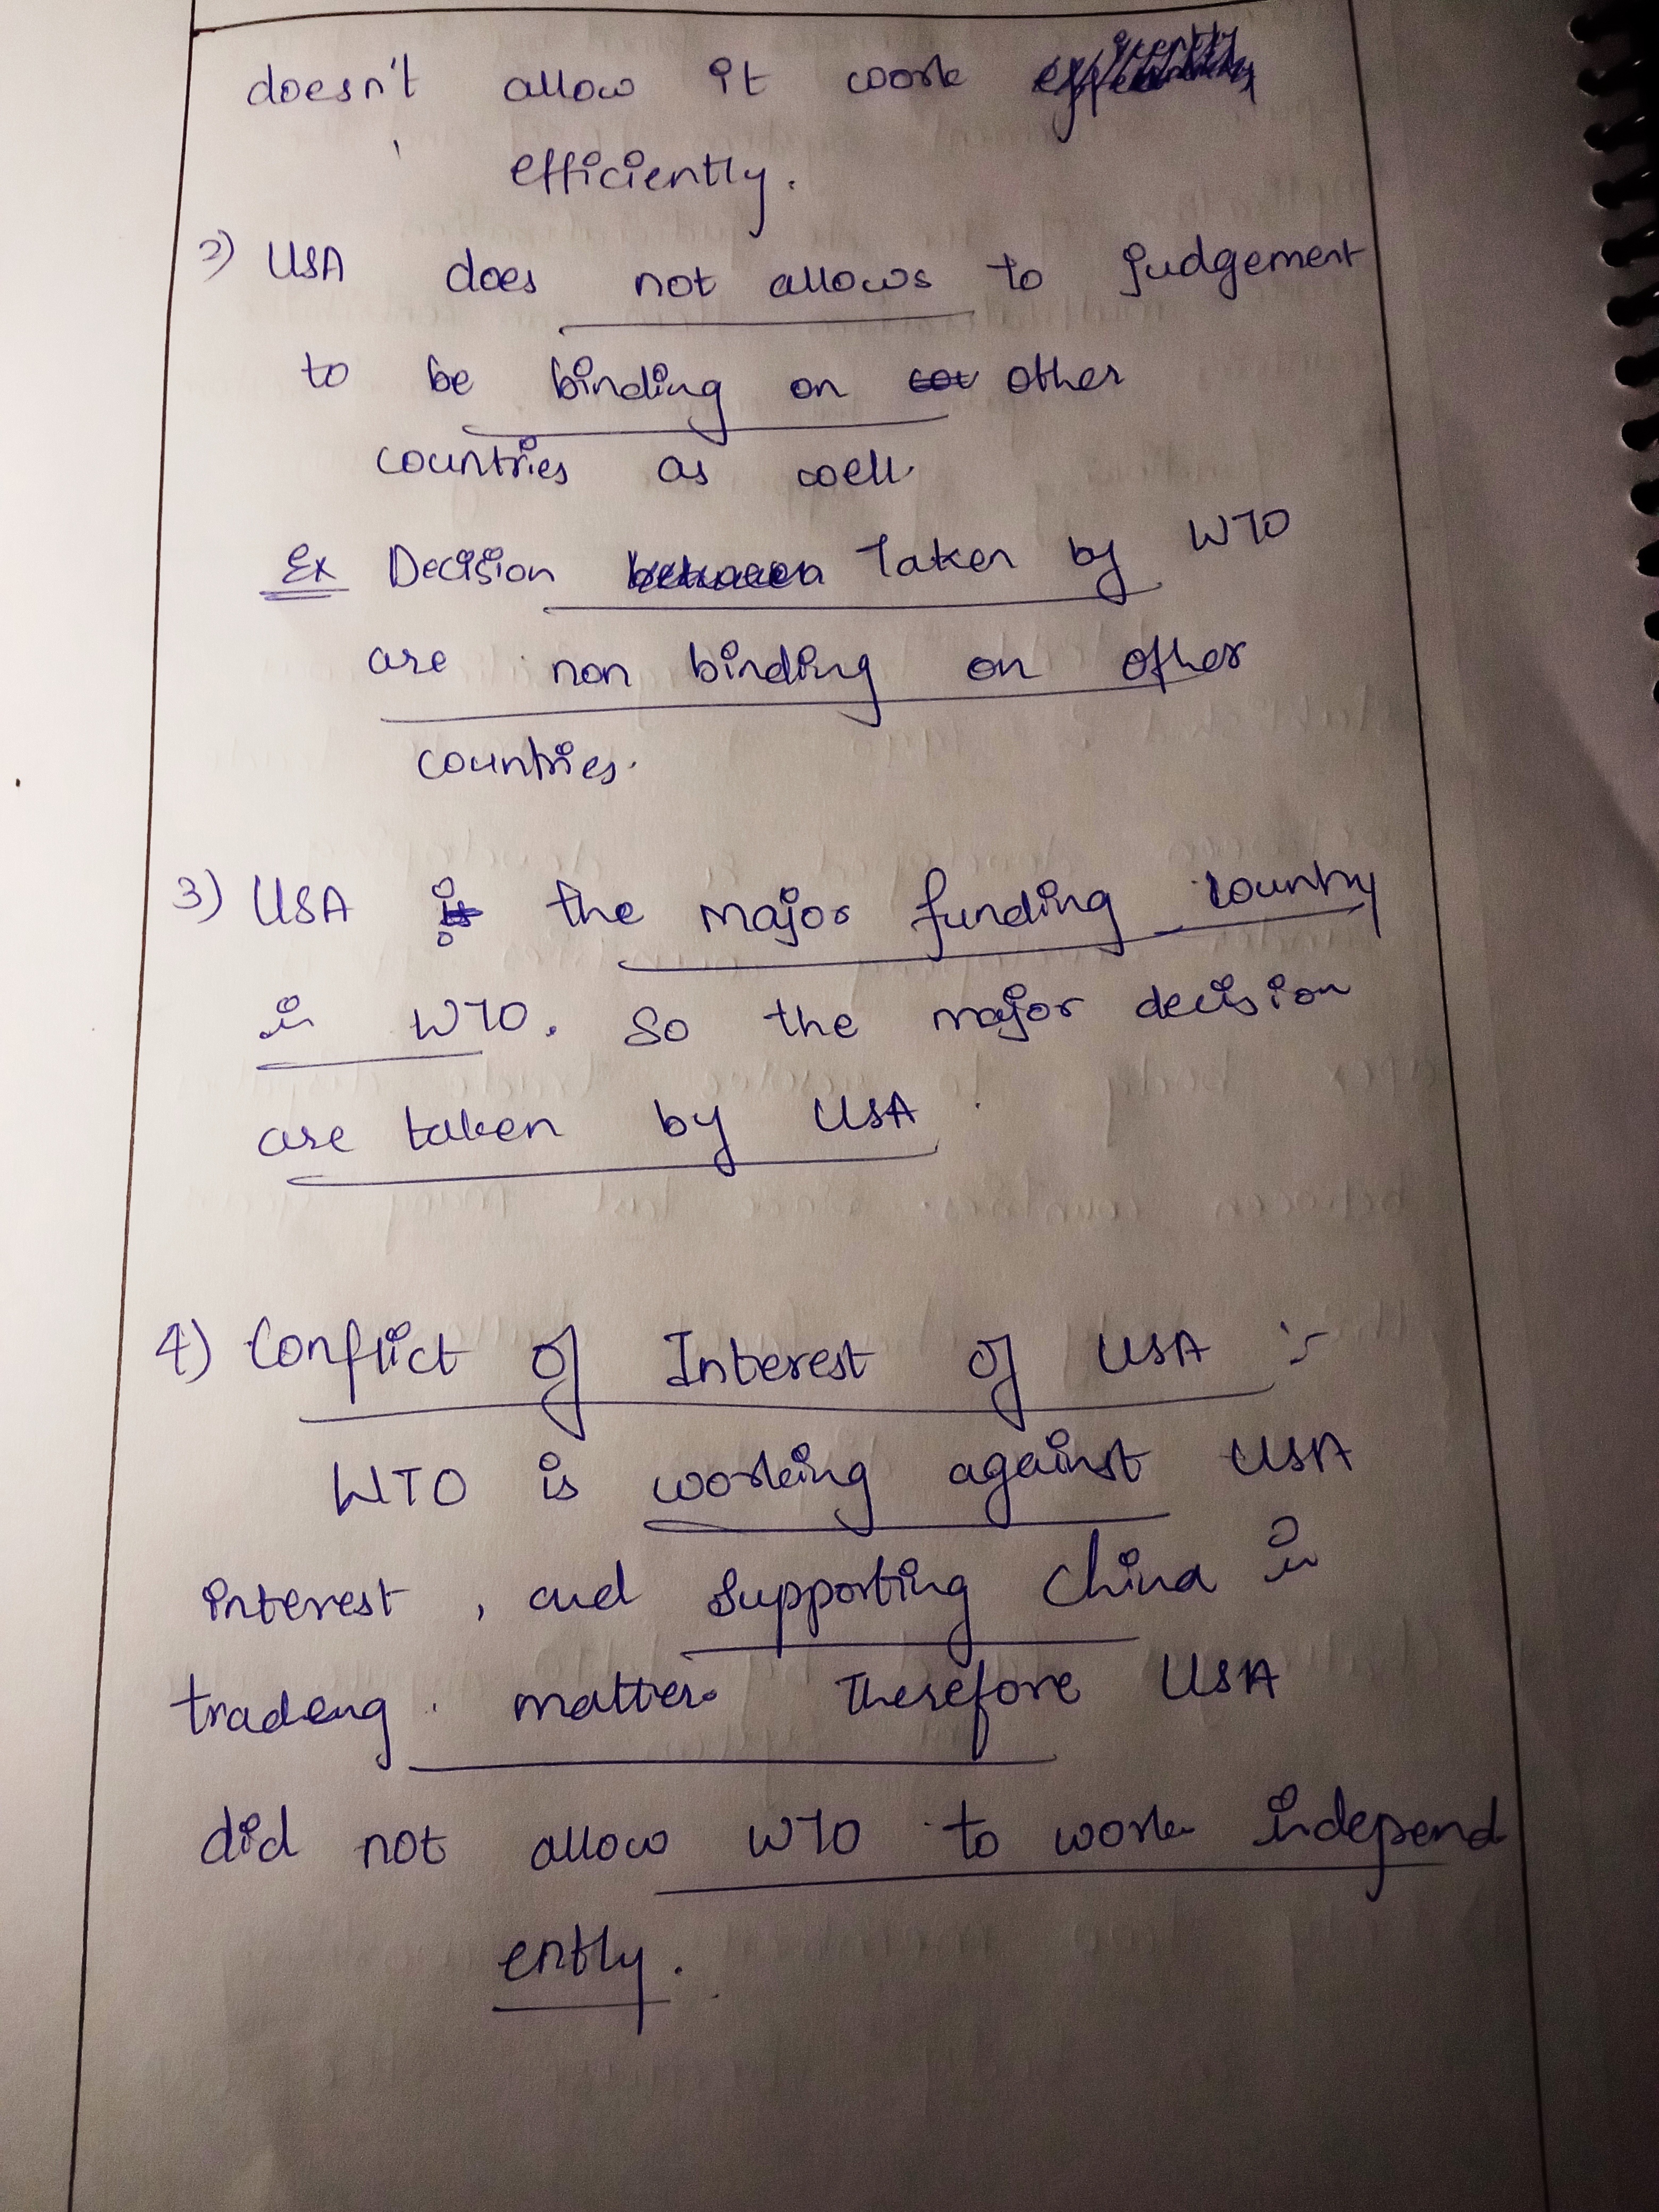 doesn't allow it work
efficiently.
2) USA does not allows to judgement
to be binding on other
countries as well.
Ex Decision taken by WTO
are non binding on other
countries.
3) USA is the major funding country
in WTO. So the major decision
are taken by USA
4) Conflict of Interest of USA :-
WTO is working against USA
interest, and supporting China in
tradeng matter. Therefore USA
did not allow WTO to work independ
ently.